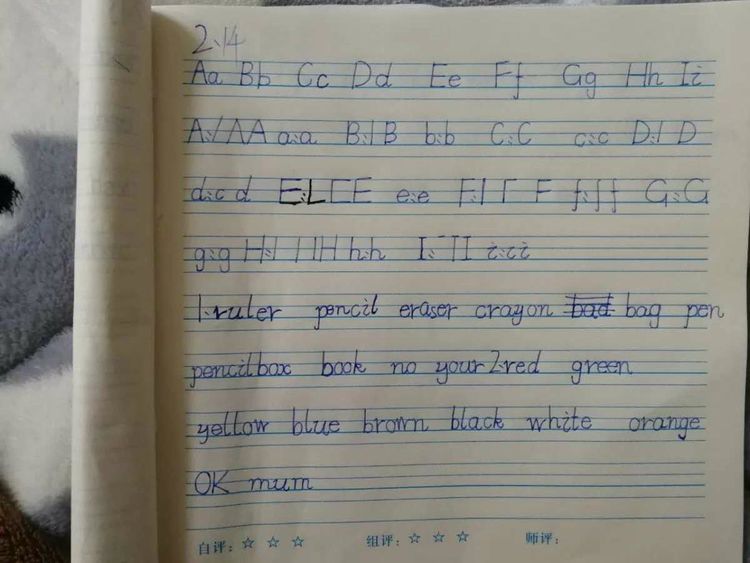 2.14
Aa Bb Cc Dd Ee Ff Gg Hh Ii
A:/ΛA a:a B:l B b:b C:C c:c D:l D
d:c d E:L C E e:e F:l Γ F f:ʃ f G:G
g:g H:l l l H h:h I:- T I i:ι i
1.ruler pencil eraser crayon bad bag pen
pencilbox book no your 2.red green
yellow blue brown black white orange
OK mum
自评:☆ ☆ ☆ 组评:☆ ☆ ☆ 师评: